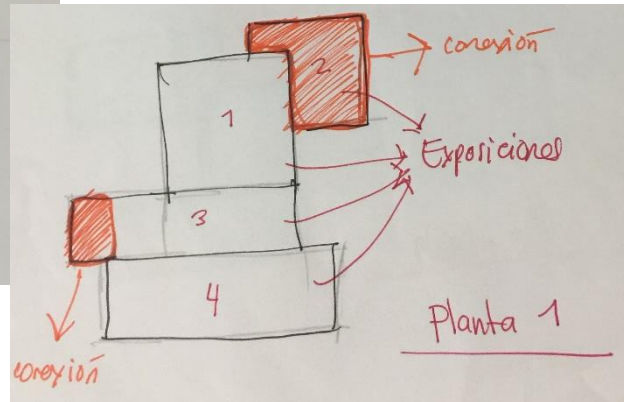 2
conexión
1
Exposiciones
3
4
Planta 1
conexión